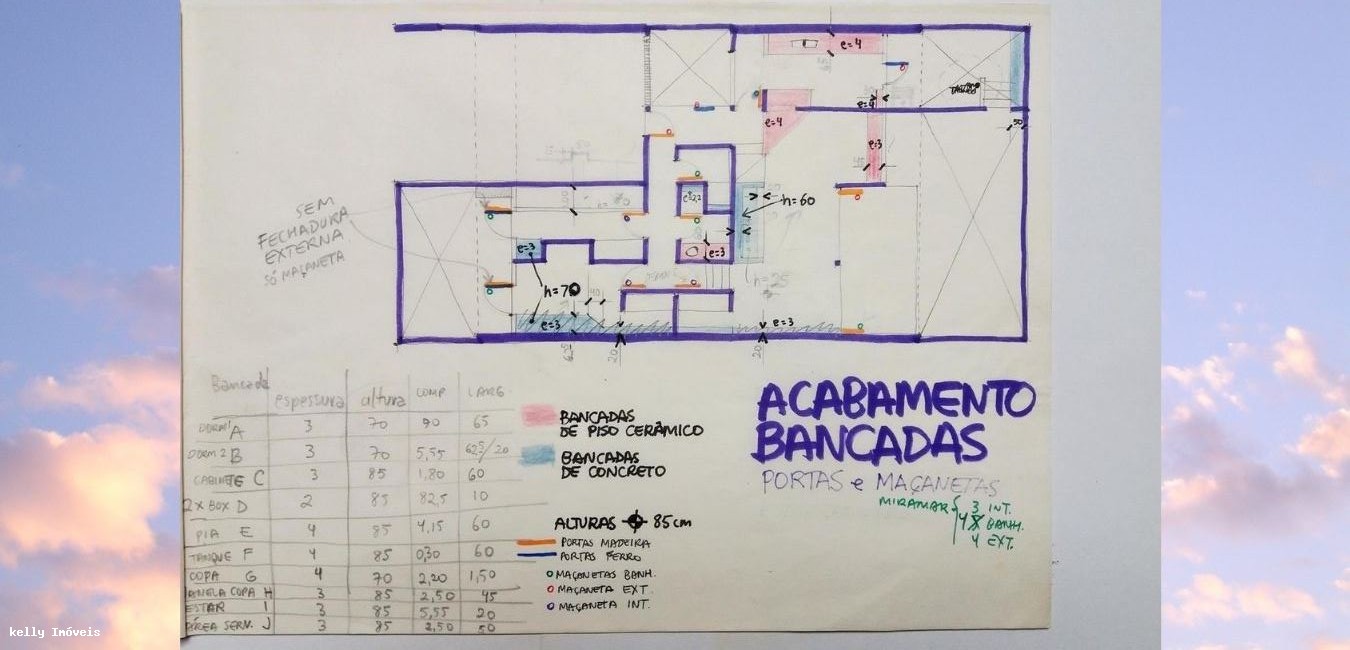 e=4
e=4
TANQUE
e=4
50
e=3
SEM
FECHADURA
EXTERNA
SÓ MAÇANETA
h=60
e=3
e=3
h=70
h=25
e=3
e=3
20
20
Bancada espessura altura COMP LARG
DORM1 A 3 70 90 65
DORM 2 B 3 70 5,55 62,5/20
CABINETE C 3 85 1,80 60
2X BOX D 2 85 82,5 10
PIA E 4 85 4,15 60
TANQUE F 4 85 0,30 60
COPA G 4 70 2,20 1,50
JANELA COPA H 3 85 2,50 45
ESTAR I 3 85 5,55 20
ÁREA SERV. J 3 85 2,50 50
BANCADAS
DE PISO CERÂMICO
BANCADAS
DE CONCRETO
ALTURAS 85 cm
PORTAS MADEIRA
PORTAS FERRO
MAÇANETAS BANH.
MAÇANETA EXT.
MAÇANETA INT.
ACABAMENTO
BANCADAS
PORTAS e MAÇANETAS
MIRAMAR { 3 INT.
4 BANH.
4 EXT.
kelly Imóveis